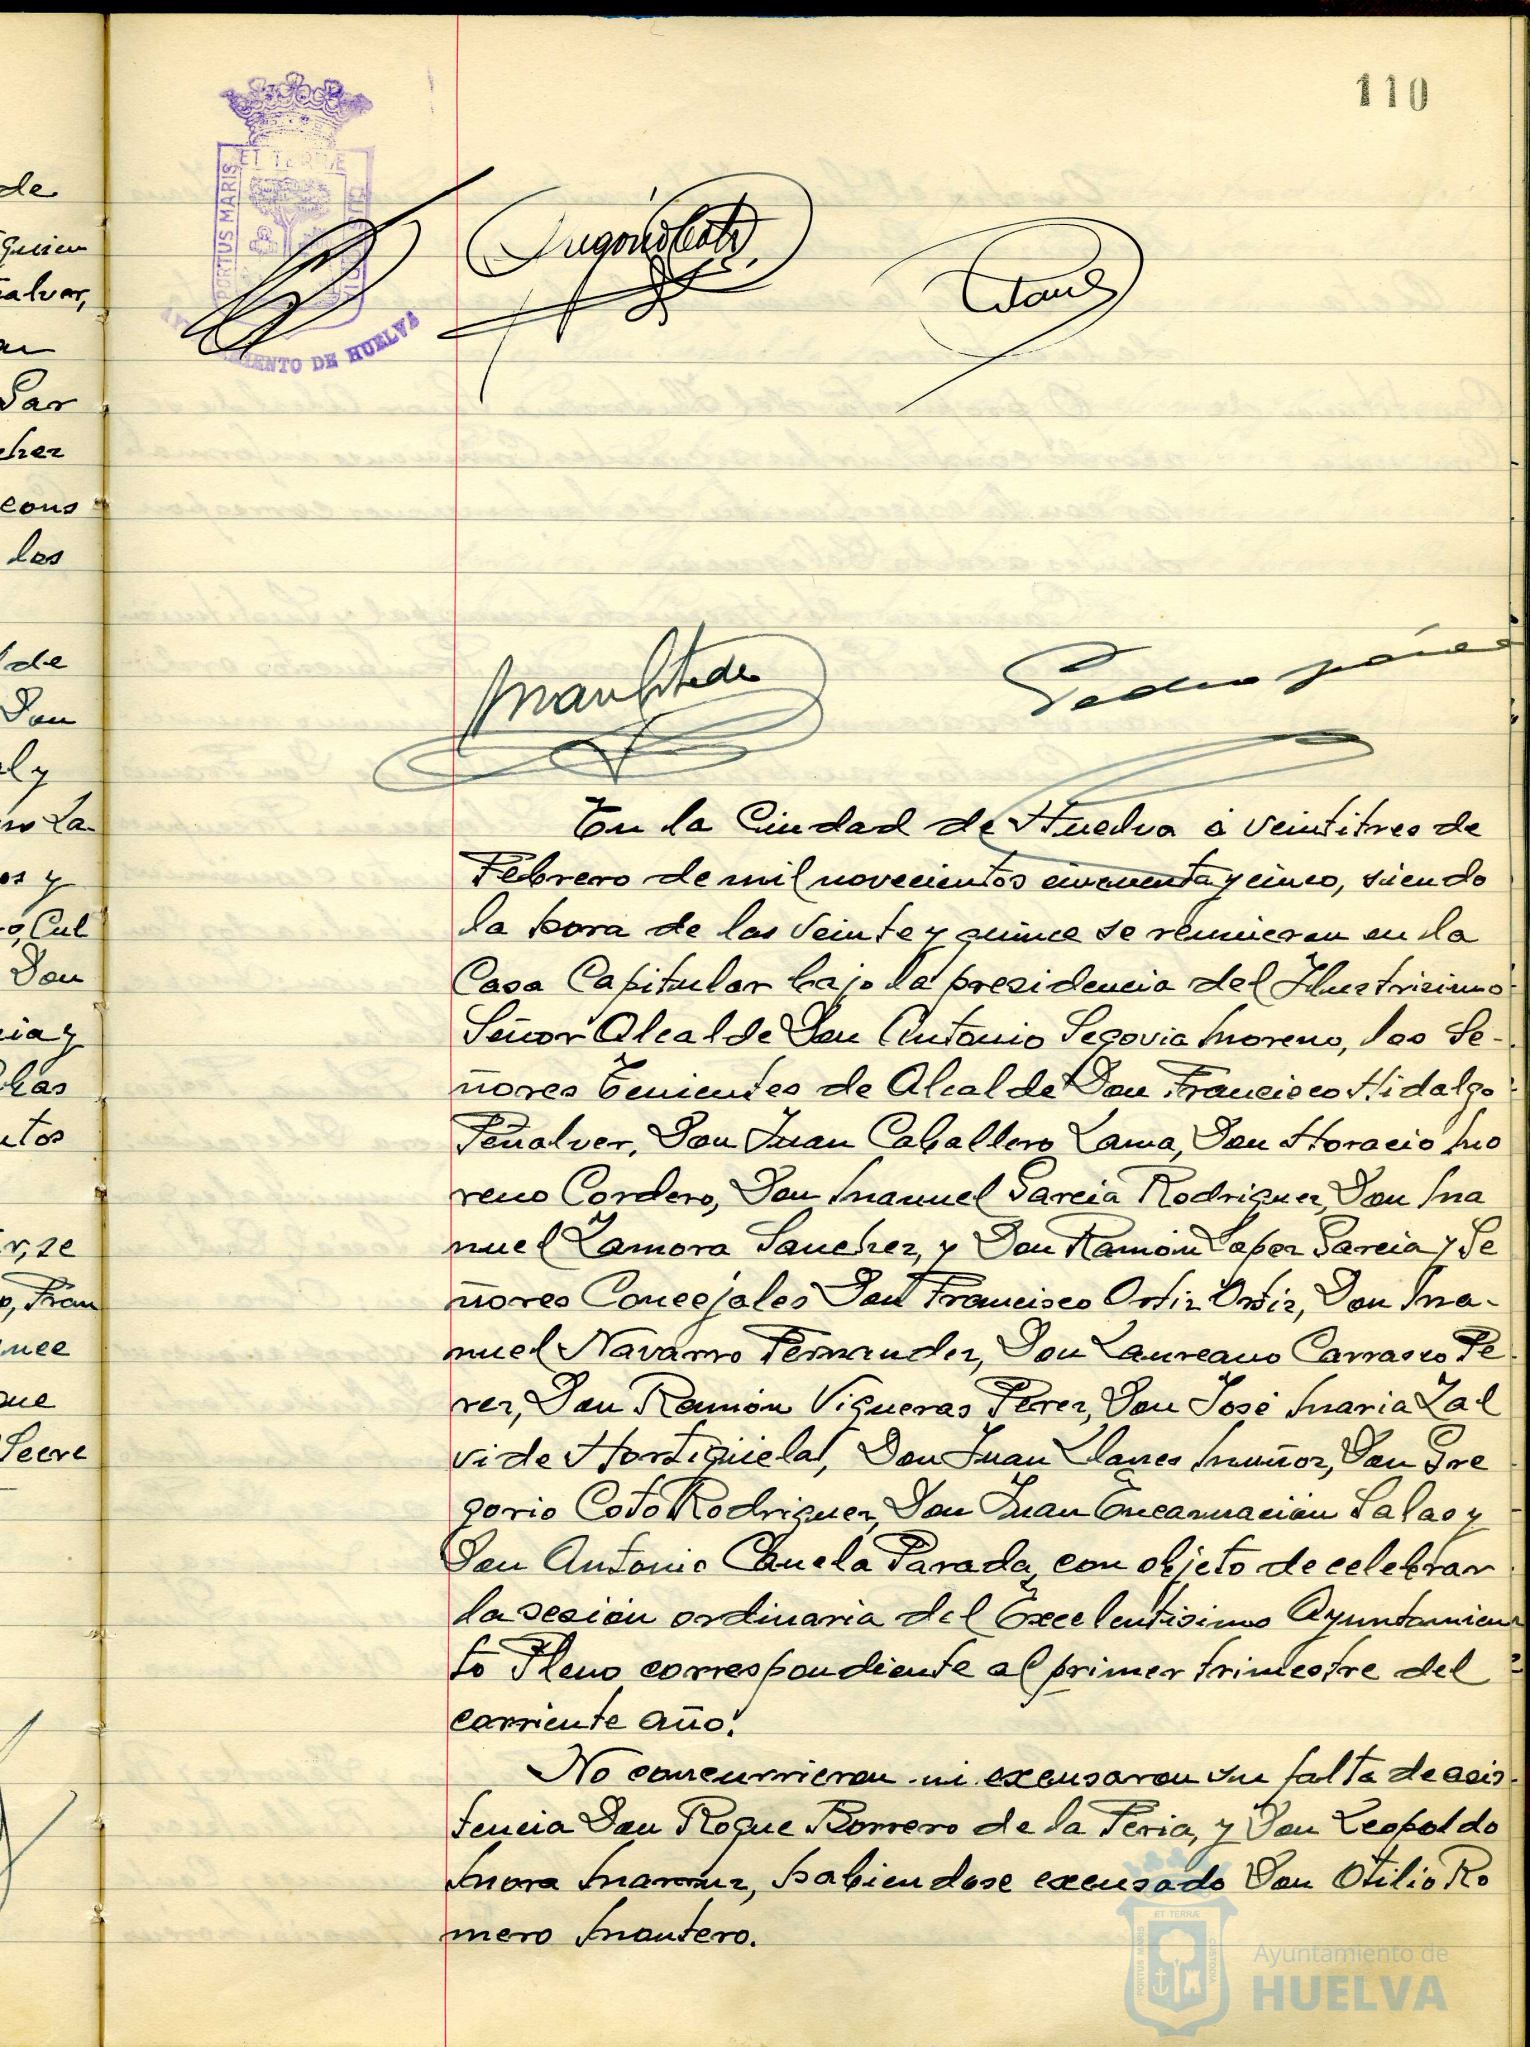 110
PORTUS MARIS
ET TERRÆ
AYUNTAMIENTO DE HUELVA
de
quien
ñalver,
Gar
chez
cons
los
de
Don
al y
La-
os y
Cul
Don
cia y
ntos
r, se
o, Fran
que
Secre
En la Ciudad de Huelva á veintitres de
Febrero de mil novecientos cincuenta y cinco, siendo
la hora de las veinte y quince se reunieron en la
Casa Capitular bajo la presidencia del Ilustrisimo
Señor Alcalde Don Antonio Segovia Moreno, los Se-
ñores Tenientes de Alcalde Don Francisco Hidalgo
Peñalver, Don Juan Caballero Lama, Don Horacio Mo
reno Cordero, Don Manuel Garcia Rodriguez, Don Ma
nuel Zamora Sanchez, y Don Ramón Lopez Garcia y Se
ñores Concejales Don Francisco Ortiz Ortiz, Don Ma-
nuel Navarro Fernandez, Don Laureano Carrasco Pe
rez, Don Ramón Vigueras Perez, Don José Maria Zal
vide Hortigüela, Don Juan Llanes Muñoz, Don Gre
gorio Coto Rodriguez, Don Juan Encarnación Salas y
Don Antonio Canela Parada, con objeto de celebrar
la sesión ordinaria del Excelentisimo Ayuntamien
to Pleno correspondiente al primer trimestre del
corriente año.
No concurrieron ni excusaron su falta de asis-
tencia Don Roque Borrero de la Feria, y Don Leopoldo
Mora habiendose excusado Don Otilio Ro
mero Montero.
ET TERRÆ
PORTUS MARIS
CUSTODIA
Ayuntamiento de
HUELVA